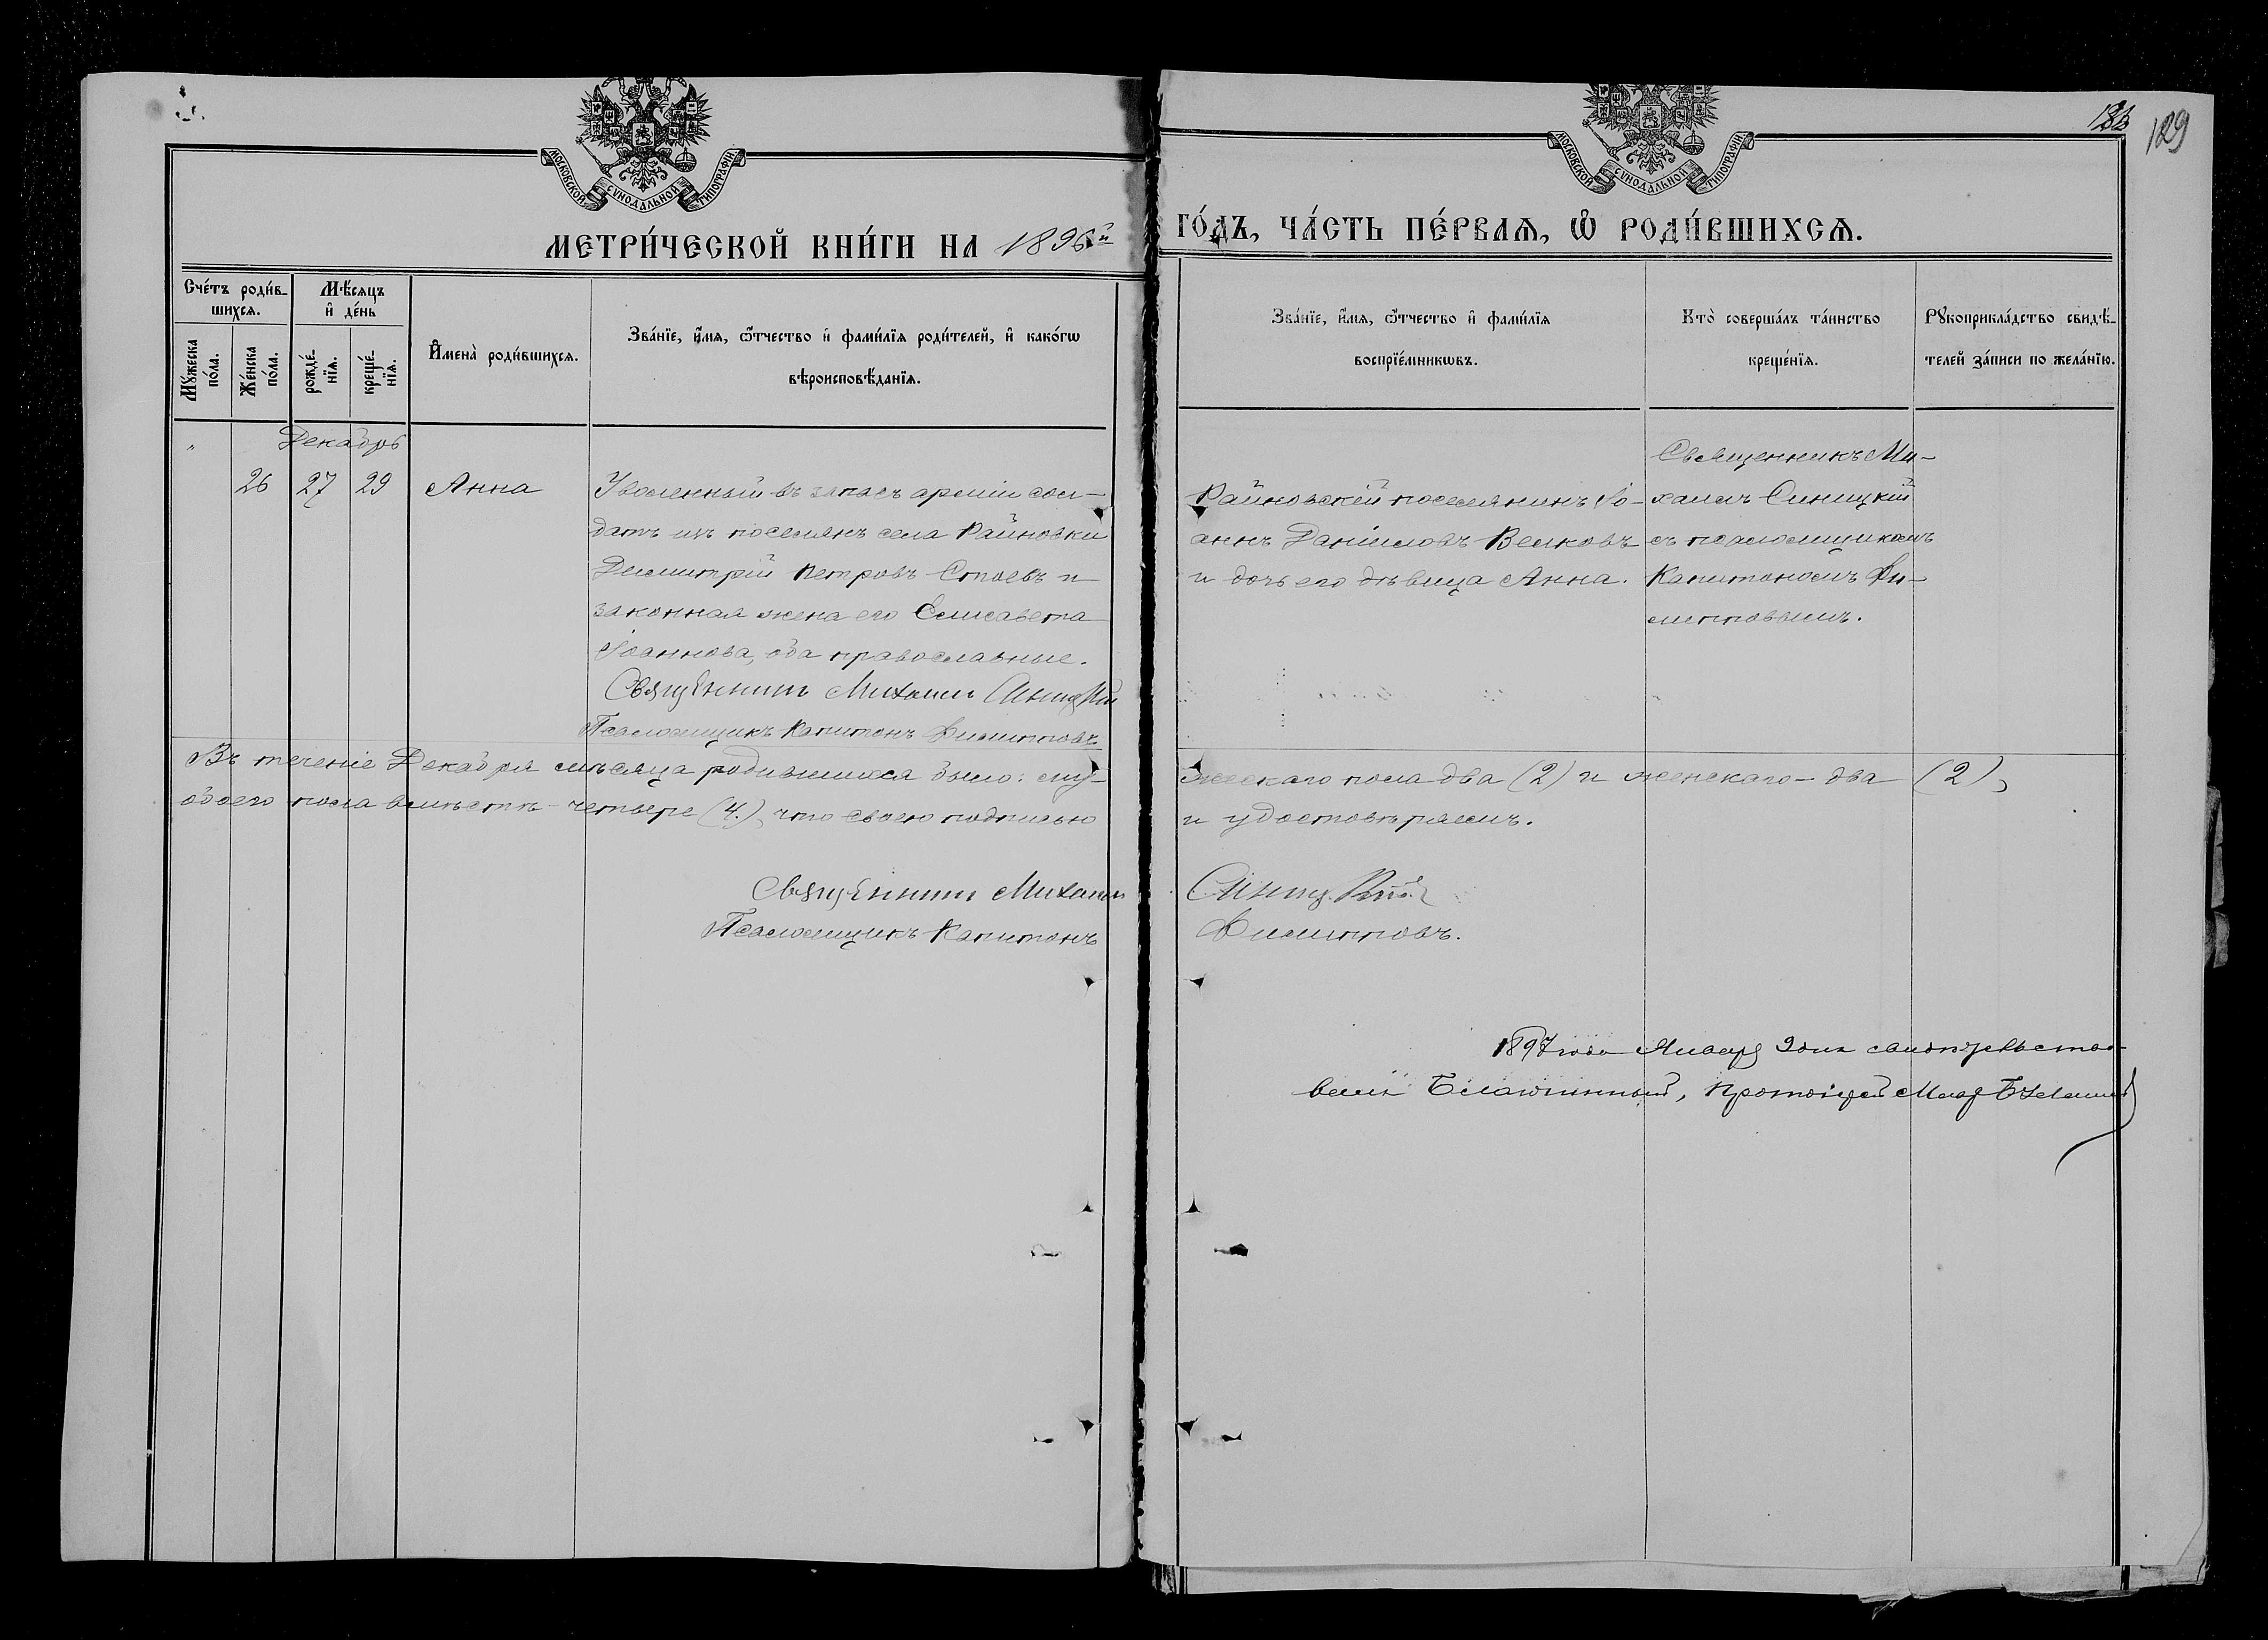 МОСКОВСКОЙ СУНОДАЛЬНОЙ ТИПОГРАФІИ.
МОСКОВСКОЙ СУНОДАЛЬНОЙ ТИПОГРАФІИ.
129
МЕТРИ́ЧЕСКОЙ КНИ́ГИ НА 1896й ГО́ДЪ, ЧА́СТЬ ПЕ́РВАѦ, Ѿ РОДИ́ВШИХСѦ.
Сче́тъ роди́в-
шихсѧ.
Мꙋ́жеска по́ла.
Же́нска по́ла.
Мѣ́сѧцъ
и҆ де́нь
рожде́-нїѧ.
креще́-нїѧ.
И҆мена̀ роди́вшихсѧ.
Зва́нїе, и҆́мѧ, ѻ҆́тчество и҆ фами́лїѧ роди́телей, и҆ како́гѡ
вѣроисповѣ́данїѧ.
Зва́нїе, и҆́мѧ, ѻ҆́тчество и҆ фами́лїѧ
воспрїе́мникѡвъ.
Кто̀ соверша́лъ та́инство
креще́нїѧ.
Рꙋкоприкла́дство свидѣ́-
телей за́писи по жела́нїю.
Декабрь
26 27 29 Анна
Уволенный въ запасъ арміи сол-
датъ изъ поселянъ села Райновки
Димитрій Петровъ Стоевъ и
законная жена его Елисавета
Іоаннова, оба православные.
Священникъ Михаилъ Синицкій
Псаломщикъ Капитонъ Филипповъ
Райновскій поселянинъ Іо-
аннъ Даніиловъ Велковъ
и дочь его дѣвица Анна.
Священникъ Ми-
хаилъ Синицкій
съ псаломщикомъ
Капитономъ Фи-
липповымъ.
Въ теченіе Декабря мѣсяца родившихся было: му-
жескаго пола два (2) и женскаго - два (2),
обоего пола вмѣстѣ - четыре (4.), что своею подписью
и удостовѣряемъ.
Священникъ Михаилъ Синицкій
Псаломщикъ Капитонъ Филипповъ.
1897 года Января дня свидѣтельство-
валъ Благочинный, Протоіерей